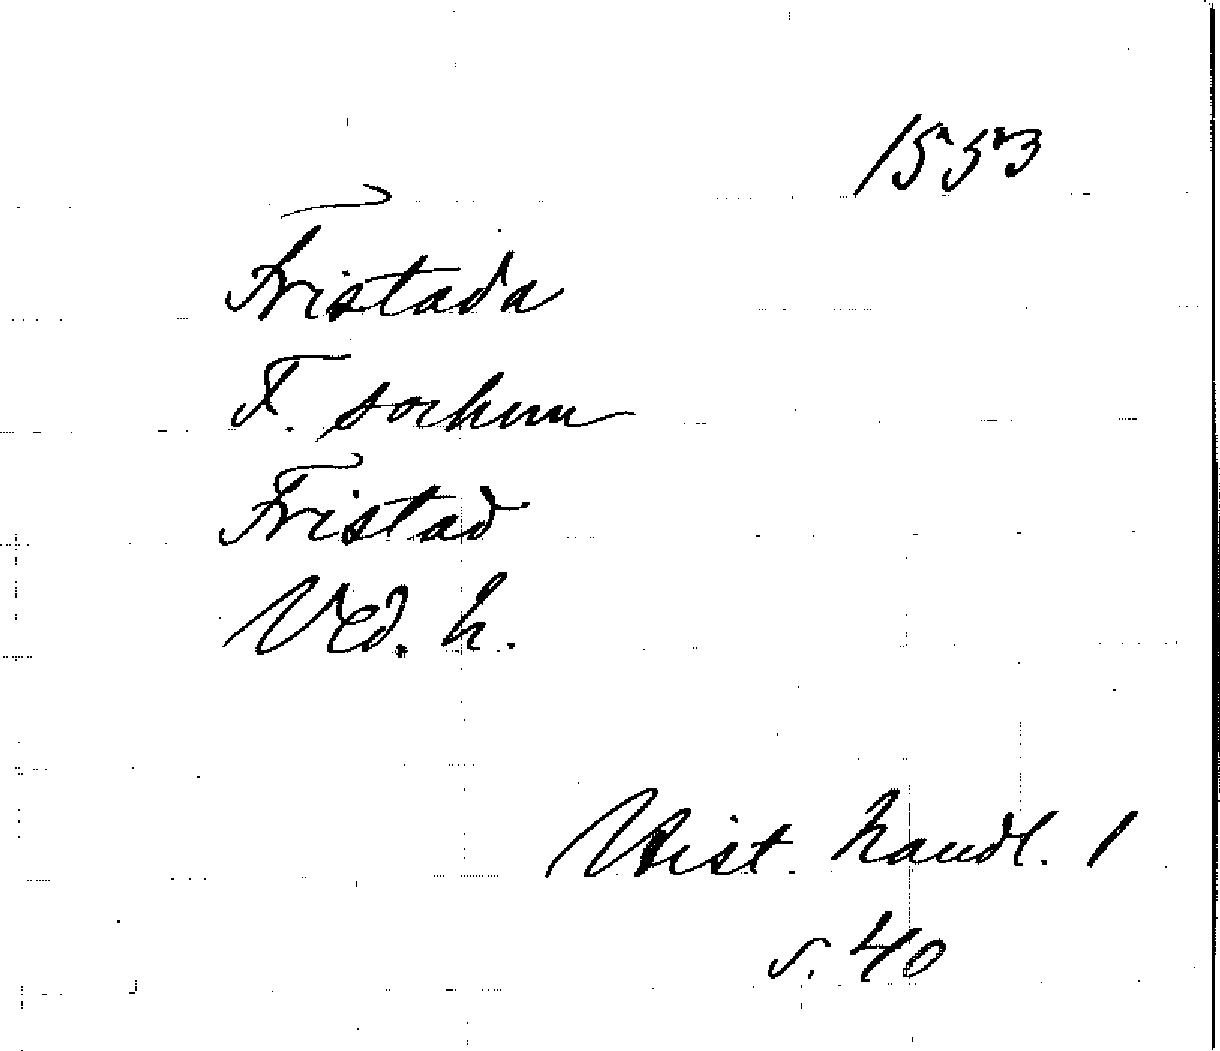 1553
Fristada
F. sockun
Fristad
Ved. h.
Hist. handl. 1
s. 40